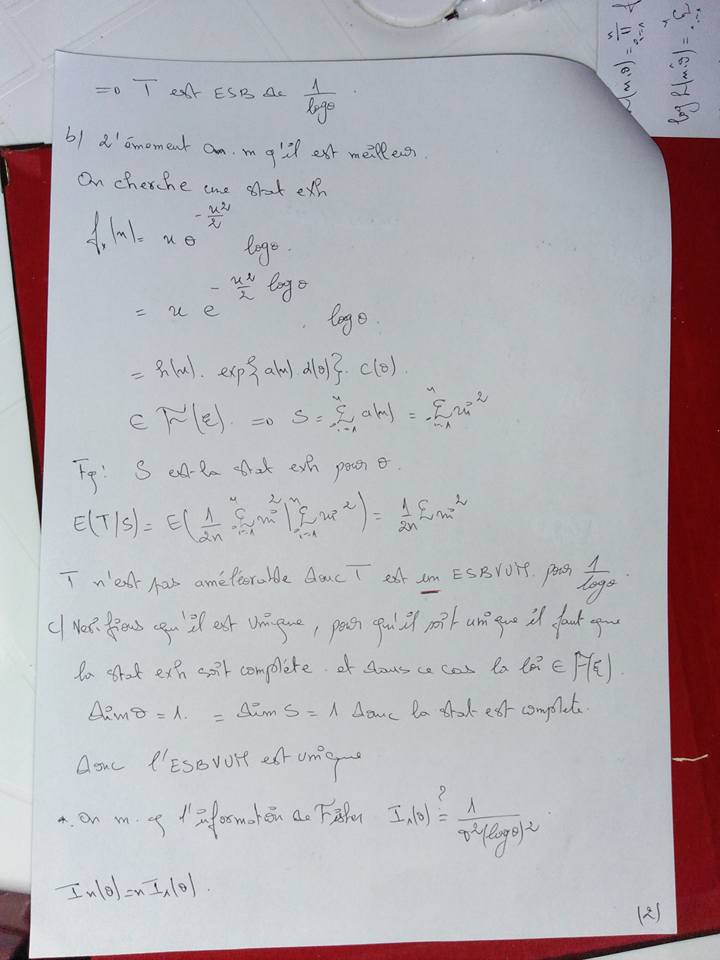 => T est ESB de 1/logθ.
b) 2'ément on. m q'il est meilleur.
On cherche une stat exh
f_x(x) = x θ^(-x²/2) logθ.
= x e^(-x²/2 logθ) . logθ.
= h(x). exp{a(x). d(θ)}. c(θ).
∈ F(ξ). => S = Σ_{i=1}^{n} a(x) = Σ_{i=1}^{n} xi²
Fq: S est la stat exh pour θ.
E(T/S) = E(1/2n Σ_{i=1}^{n} xi² | Σ_{i=1}^{n} xi²) = 1/2n Σ xi²
T n'est pas améliorable donc T est un ESBVUM. pour 1/logθ.
c/ Vérifions qu'il est unique, pour qu'il soit unique il faut que
la stat exh soit complète. et dans ce cas la loi ∈ F(ξ).
dim θ = 1. = dim S = 1 donc la stat est complete.
donc l'ESBVUM est unique
*. On m. q l'information de Fisher I₁(θ) ?= 1/θ²(logθ)².
In(θ) = n I₁(θ).
(2)